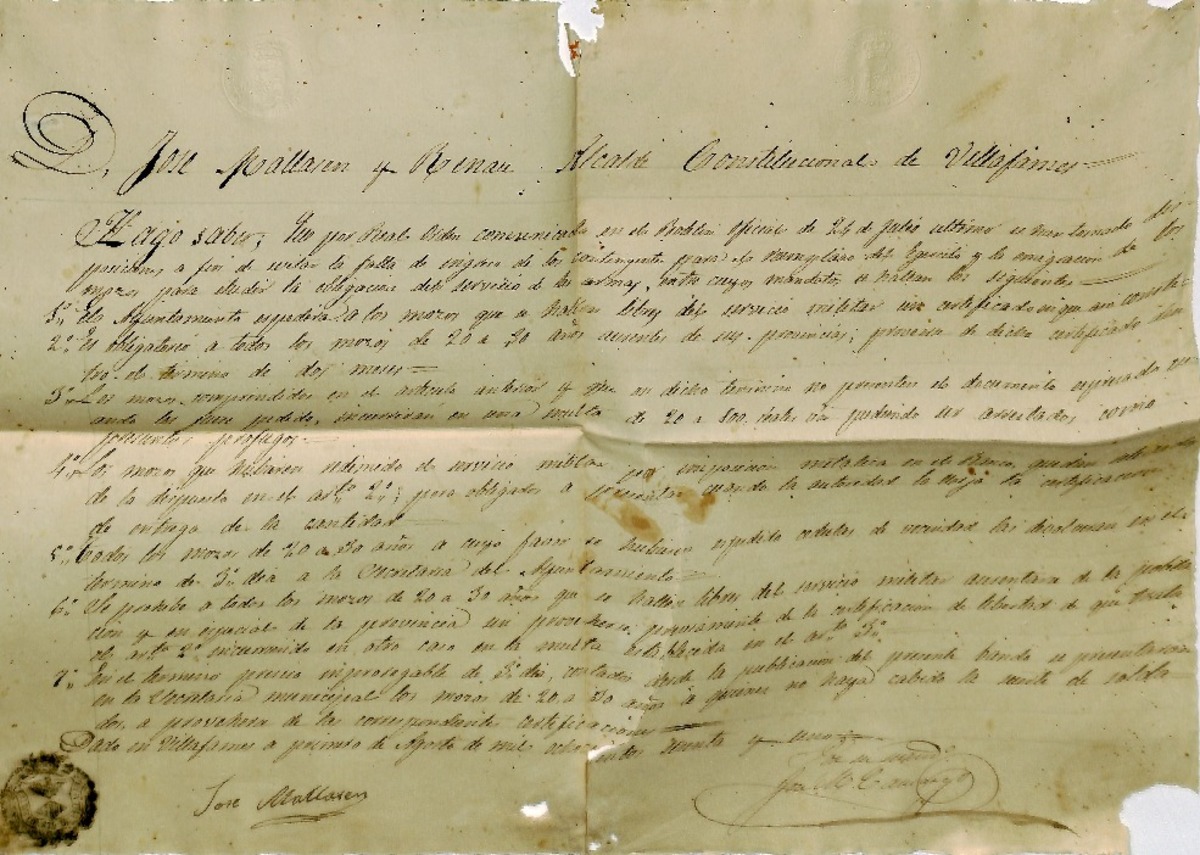 D. Jose Mallasen y Renau Alcalde Constitucional de Villafames
Hago saber; Que por Real Orden comunicada en el Boletin Oficial de 24 de Julio ultimo se han tomado dis
posiciones a fin de evitar la falta de ingreso de los contingente para el reemplazo del Ejercito y la emigracion de los
mozos para eludir la obligacion del servicio de las armas, entre cuyos mandatos se hallan los siguientes
1º Los Ayuntamientos espediran a los mozos que se hallen libres del servicio militar un certificado en que asi conste
2º Es obligatorio a todos los mozos de 20 a 30 años ausentes de sus provincias, proveerse de dicho certificado den
tro el termino de dos meses
3º Los mozos comprendidos en el articulo anterior y que en dicho termino no presenten el documento espresado cu
ando les fuere pedido, incurriran en una multa de 20 a 100 reales pudiendo ser arrestados como
presuntos profugos.
4º Los mozos que se hubieren redimido del servicio militar por metalica en el Banco, quedan
de lo dispuesto en el artº 2º; pero obligados a presentar cuando la autoridad lo exija la certificacion
de entrega de la cantidad
5º Todos los mozos de 20 a 30 años a cuyo favor se hubieren espedido cedulas de vecindad las devolveran en el
termino de 3º dia a la Secretaria del Ayuntamiento
6º Se prohibe a todos los mozos de 20 a 30 años que se hallen libres del servicio militar ausentarse de la pobla
cion y en especial de la provincia sin proveherse previamente de la certificacion de libertad de que trata
el artº 2º incurriendo en otro caso en la multa establecida en el artº 3º
7º En el termino preciso improrogable de 3º dia, contados desde la publicacion del presente bando se presentaran
en la Secretaria municipal los mozos de 20 a 30 años a quienes no haya cabido la suerte de solda
dos, a proveherse de las correspondientes certificaciones
Dado en Villafames a primero de Agosto de mil ochocientos y uno
Jose Mallasen
Por su mand.